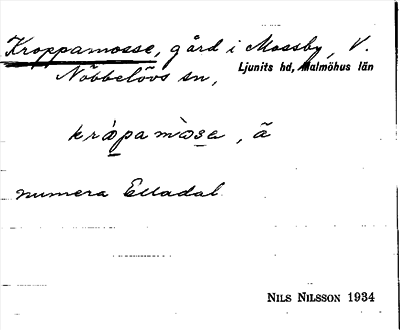 Kroppamosse, gård i Mossby, V.
Nöbbelövs sn, Ljunits hd, Malmöhus län
kråpamòse, ã
numera Elladal
NILS NILSSON 1934